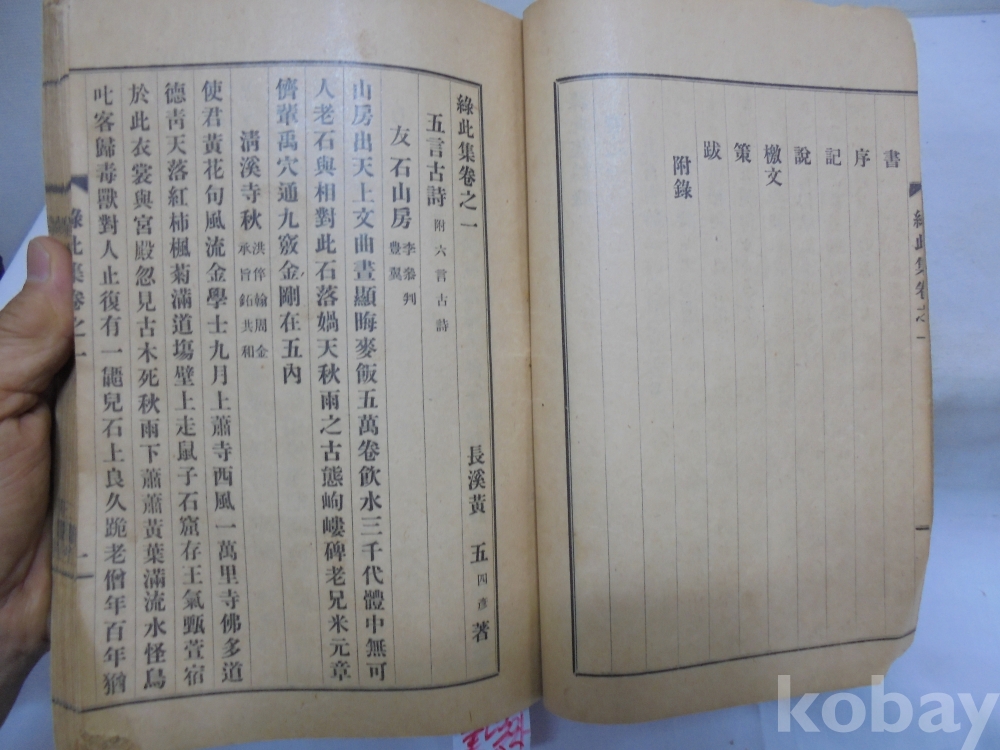 書
序
記
說
檄文
策
跋
附錄
綠此集卷之一
綠此集卷之一
長溪黃 五 四彥 著
五言古詩 附六言古詩
友石山房 李豊翼
山房出天上文曲晝顯晦麥飯五萬卷飮水三千代體中無可
人老石與相對此石落媧天秋雨之古態岣嶁碑老兄米元章
儕輩禹穴通九竅金剛在五內
淸溪寺秋 洪停翰周金
承旨鉐共和
使君黃花句風流金學士九月上蕭寺西風一萬里寺佛多道
德靑天落紅柿楓菊滿道塲壁上走鼠子石窟存王氣甄萱宿
於此衣裳與宮殿忽見古木死秋雨下蕭蕭黃葉滿流水怪鳥
叱客歸毒獸對人止復有一兒石上良久跪老僧年百年猶
綠此集卷之一
一
kobay